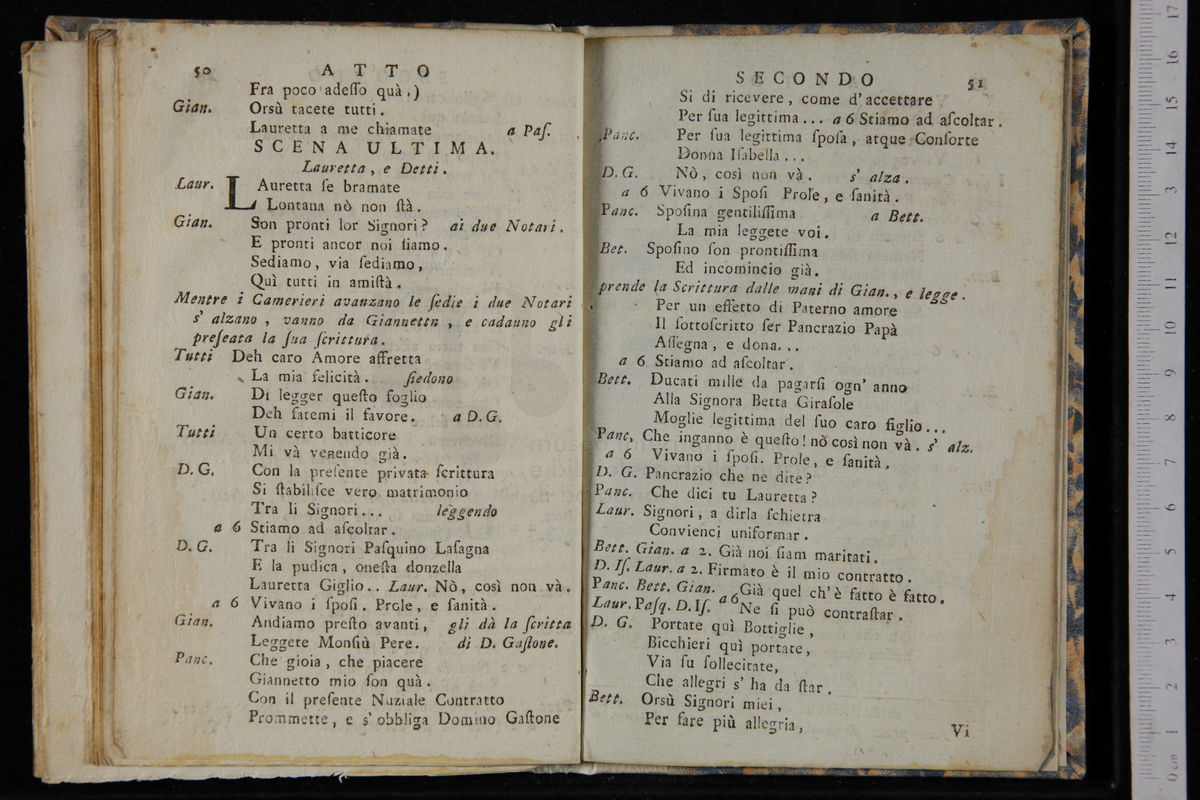 50 ATTO
Fra poco adeſſo quà.)
Gian. Orsù tacete tutti.
Lauretta a me chiamate a Paſ.
SCENA ULTIMA.
Lauretta, e Detti.
Laur. LAuretta ſe bramate
Lontana nò non ſtà.
Gian. Son pronti lor Signori? ai due Notari.
E pronti ancor noi ſiamo.
Sediamo, via ſediamo,
Quì tutti in amiſtà.
Mentre i Camerieri avanzano le ſedie i due Notari
s' alzano, vanno da Giannettn, e cadauno gli
preſeata la ſua ſcrittura.
Tutti Deh caro Amore affretta
La mia felicità. ſiedono
Gian. Di legger queſto foglio
Deh fatemi il favore. a D. G.
Tutti Un certo batticore
Mi và venendo già.
D. G. Con la preſente privata ſcrittura
Si ſtabiliſce vero matrimonio
Tra li Signori... leggendo
a 6 Stiamo ad aſcoltar.
D. G. Tra li Signori Paſquino Laſagna
E la pudica, oneſta donzella
Lauretta Giglio.. Laur. Nò, così non và.
a 6 Vivano i ſpoſi. Prole, e ſanità.
Gian. Andiamo preſto avanti, gli dà la ſcritta
Leggete Monſiù Pere. di D. Gaſtone.
Panc. Che gioia, che piacere
Giannetto mio ſon quà.
Con il preſente Nuziale Contratto
Prommette, e s' obbliga Domino Gaſtone
SECONDO 51
Si di ricevere, come d' accettare
Per ſua legittima... a 6 Stiamo ad aſcoltar.
Panc. Per ſua legittima ſpoſa, atque Conſorte
Donna Iſabella...
D. G. Nò, così non và. s' alza.
a 6 Vivano i Spoſi Prole, e ſanità.
Panc. Spoſina gentiliſſima a Bett.
La mia leggete voi.
Bet. Spoſino ſon prontiſſima
Ed incomincio già.
prende la Scrittura dalle mani di Gian., e legge.
Per un effetto di Paterno amore
Il ſottoſcritto ſer Pancrazio Papà
Aſſegna, e dona...
a 6 Stiamo ad aſcoltar.
Bett. Ducati mille da pagarſi ogn' anno
Alla Signora Betta Giraſole
Moglie legittima del ſuo caro figlio...
Panc, Che inganno è queſto! nò così non và. s' alz.
a 6 Vivano i ſpoſi. Prole, e ſanità.
D. G. Pancrazio che ne dite?
Panc. Che dici tu Lauretta?
Laur. Signori, a dirla ſchietta
Convienci uniformar.
Bett. Gian. a 2. Già noi ſiam maritati.
D. Iſ. Laur. a 2. Firmato è il mio contratto.
Panc. Bett. Gian. a 6 Già quel ch' è fatto è fatto.
Laur. Paſq. D. Iſ. Ne ſi può contraſtar.
D. G. Portate quì Bottiglie,
Bicchieri quì portate,
Via ſu ſollecitate,
Che allegri s' ha da ſtar.
Bett. Orsù Signori miei,
Per fare più allegria,
Vi